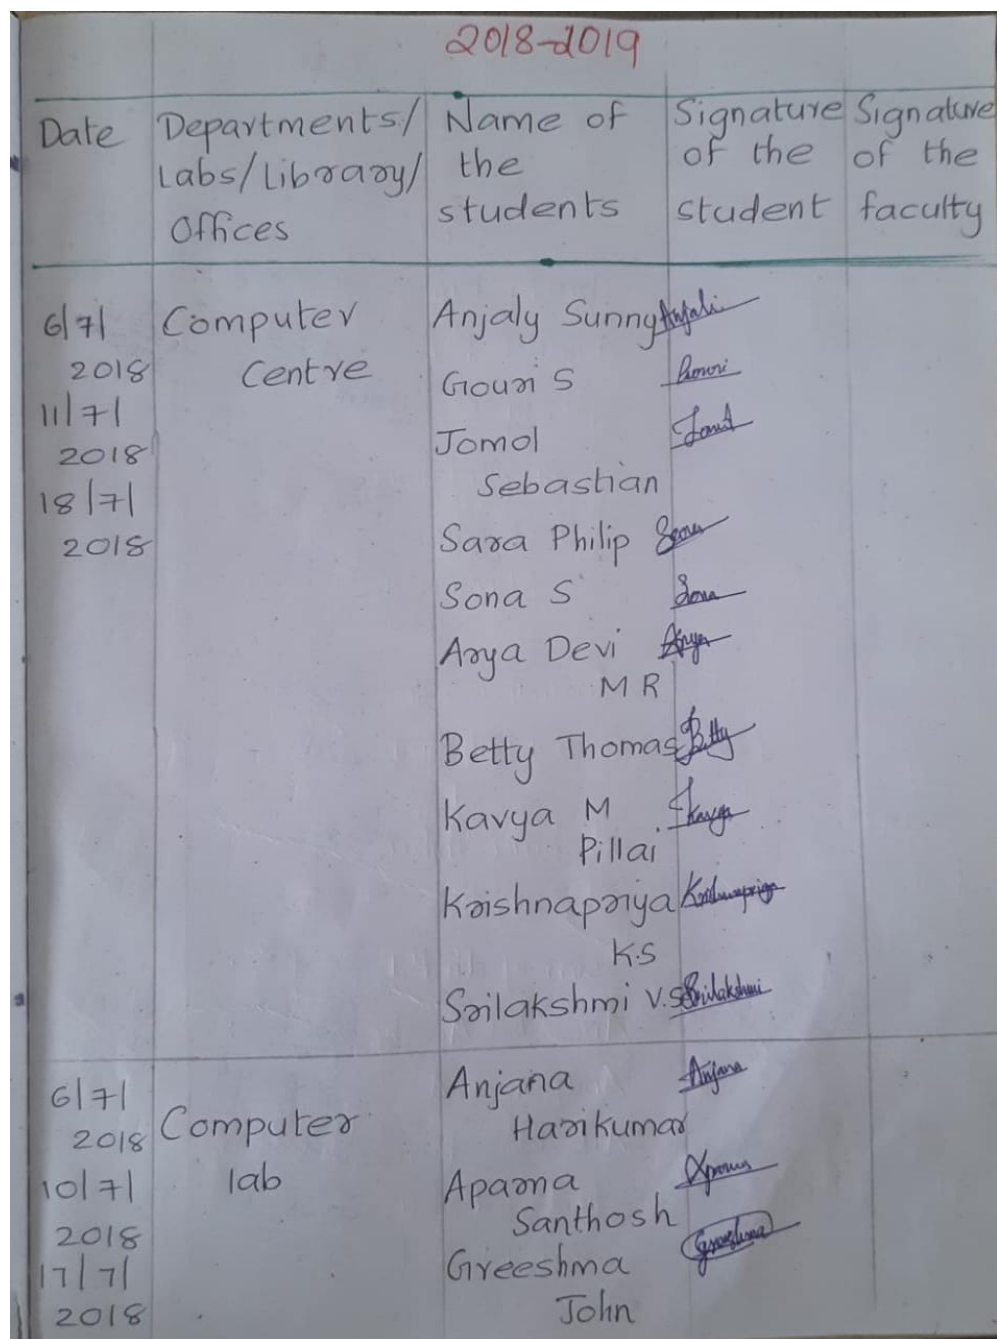 2018-2019
Date
Departments/
Labs/Library/
Offices
Name of
the
students
Signature
of the
student
Signature
of the
faculty
6/7/
2018
11/7/
2018
18/7/
2018
Computer
Centre
Anjaly Sunny Anjali
Gouri S Gouri
Jomol
Sebastian
Sara Philip Sara
Sona S Sona
Arya Devi Arya
M R
Betty Thomas Betty
Kavya M Kavya
Pillai
Krishnapriya Krishnapriya
K.S
Srilakshmi V.S Srilakshmi
6/7/
2018
10/7/
2018
17/7/
2018
Computer
lab
Anjana Anjana
Harikumar
Aparna Aparna
Santhosh
Greeshma Greeshma
John